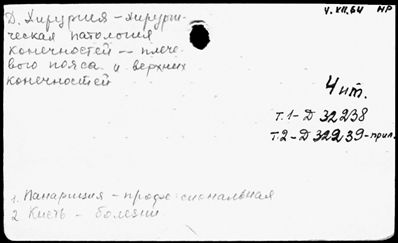 V.XII.64 НР
Д. Хирургия - хирурги-
ческая патология
конечностей -- плече-
вого пояса и верхних
конечностей
4 ит.
Т.1 - Д 32238
Т.2 - Д 32239 - прил.
1. Панариция - профессиональная
2 Кисть - болезни